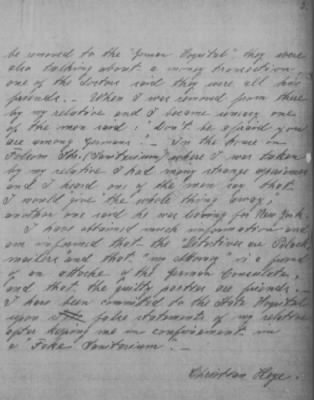 be removed to the "German Hospital" they were
also talking about a money transaction
one of the doctors said they were all his
friends. - When I was removed from there
by my relative and I became uneasy one
of the men said: "Don't be afraid you
are among Germans." - In the house in
Folsom Str. (Sanitarium) where I was taken
by my relative I had many strange experiences
and I heard one of the men say that
I would give the whole thing away,
another one said he was leaving for New York.
I have obtained much information and
am informed that the Detectives are Black
mailers and that "my Attorney" is a friend
of an attache of the German Consulate,
and that the guilty parties are friends. -
I have been committed to the State Hospital
upon false statements of my relative
after keeping me in confinement in
a "Fake Sanitarium". -
Christian